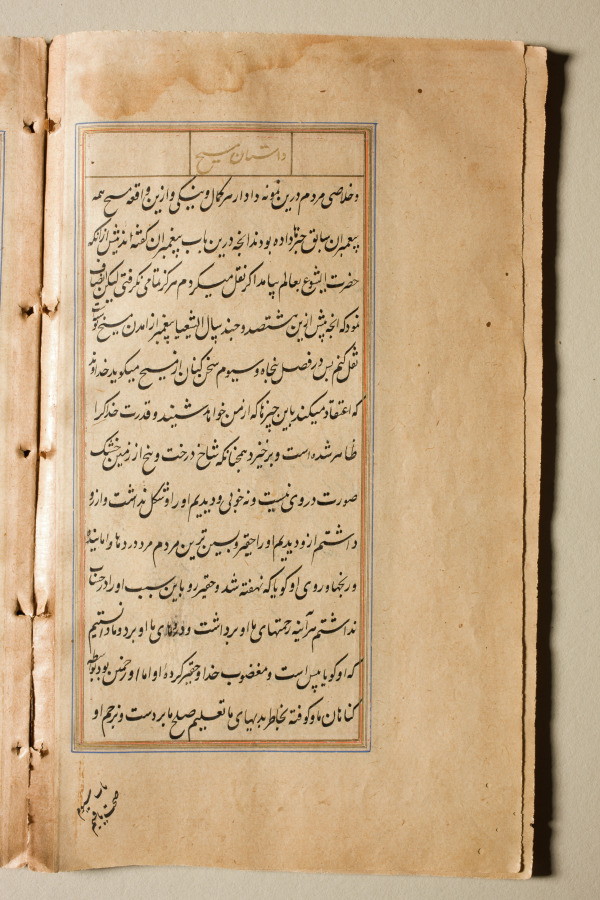 داستان مسیح
و خلاصی مردم درین نمونه دادار سر کمال و نیکی و ازین واقعه مسیح همه
پیغمبران سابق خبرها داده بودند انچه درین باب پیغمبران گفته اند پیش ازانکه
حضرت ایشوع بعالم بیامد اکر نقل میکردم هرکز تمامی نکرفتی لیکن
نمود که انچه پیش ازین هشتصد و چند سال اشعیا پیغمبر از امدن مسیح
نقل کنم پس در فصل پنجاه و سیوم سخن کنان از مسیح میکوید خداوند
که اعتقاد میکند باین چیزها که از من خواهد شنید و قدرت خدا کرا
ظاهر شده است و برخیزد همچنانکه شاخ درخت و بیخ از زمین خشک
صورت در وی نیست و نه خوبی و دیدیم اورا و شکل نداشت و ارزو
داشتیم ازو دیدیم اورا حقیر و پسین ترین مردم مرد دردها و
و رنجها و روی او کویا که نهفته شد و حقیر رو باین سبب اورا در حساب
نداشتیم هرآینه رحمتهای ما او برداشت و دردهای ما او برد و ما دانستیم
که او کویا پیس است و مغضوب خدا و حقیر کرده او اما او خمن بود بواسطه
کناهان ما و کوفته بخاطر بدیهای ما تعلیم صلح ما بر دست و بزخم او